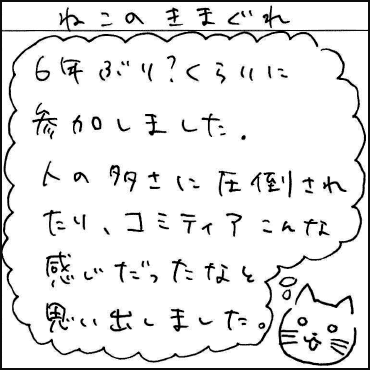 ねこのきまぐれ
6年ぶり?くらいに
参加しました.
人の多さに圧倒され
たり、コミティアこんな
感じだったなと
思い出しました。